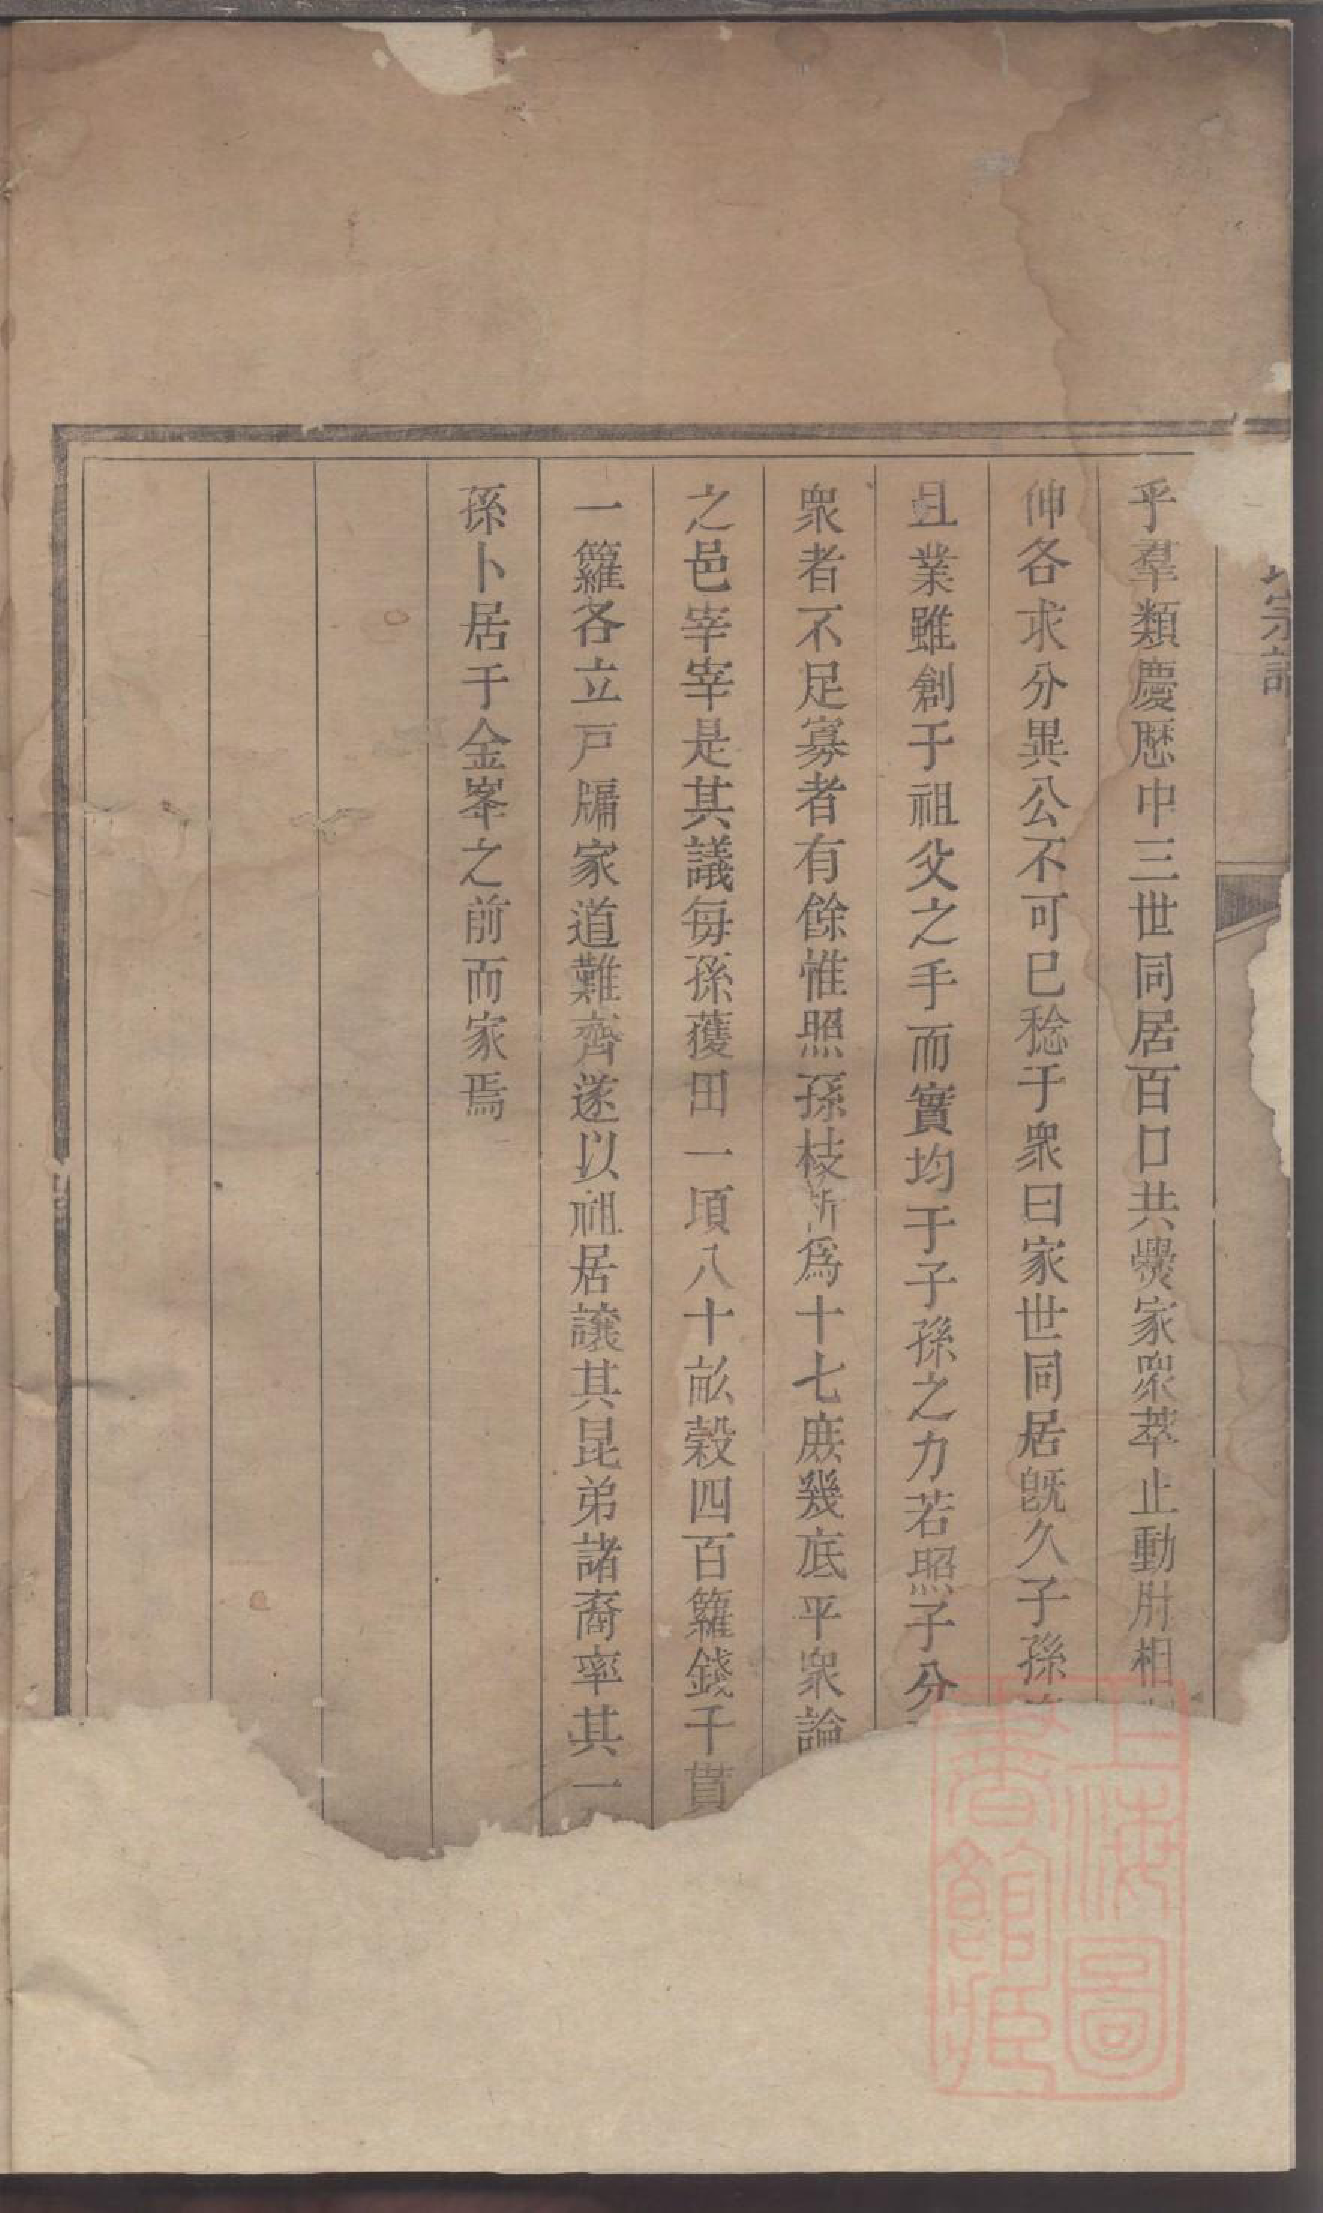 宗譜
乎羣類慶歷中三世同居百口共㸑家衆萃止動肘相
伸各求分異公不可已稔于衆曰家世同居旣久子孫
且業雖創于祖父之手而實均于子孫之力若照子分
衆者不足寡者有餘惟照孫枝析爲十七庻幾底平衆論
之邑宰宰是其議每孫獲田一項八十畝榖四百籮錢千貫
一籮各立戸牖家道難齊遂以祖居讓其昆弟諸裔率其一
孫卜居于金峯之前而家焉
上海圖書館藏